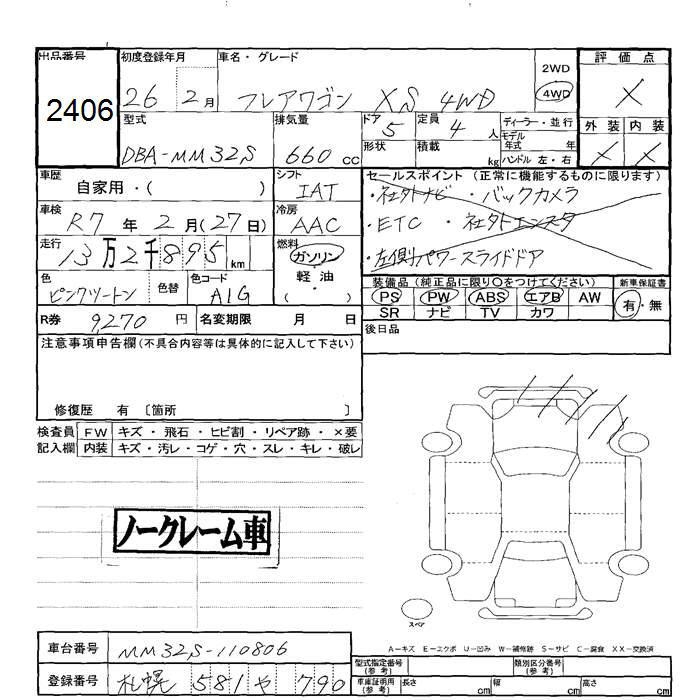 出品番号
2406
初度登録年月
26 2月
車名・グレード
フレアワゴン XS 4WD
2WD
4WD
評価点
X
外装 内装
X X
型式
DBA-MM32S
排気量
660 cc
ドア
5
定員
4 人
形状
積載
kg
ディーラー・並行
モデル年式 年
ハンドル 左・右
車歴
自家用・( )
シフト
IAT
車検
R7年2月(27日)
冷房
AAC
走行
13万2千895km
燃料
ガソリン
軽油
( ・ )
色
ピンクツートン
色替
色コード
A1G
セールスポイント(正常に機能するものに限ります)
・社外ナビ ・バックカメラ
・ETC ・社外エンスタ
・左側パワースライドドア
装備品(純正品に限り○をつけてください)
新車保証書
PS PW ABS エアB AW
SR ナビ TV カワ
有・無
R券 9,270 円
名変期限 月 日
後日品
注意事項申告欄(不具合内容等は具体的に記入して下さい)
修復歴 有 〔箇所 〕
検査員記入欄
FW キズ・飛石・ヒビ割・リペア跡・×要
内装 キズ・汚レ・コゲ・穴・スレ・キレ・破レ
ノークレーム車
スペア
A-キズ E-エクボ U-凹み W-補修跡 S-サビ C-腐食 XX-交換済
車台番号
MM32S-110806
登録番号
札幌 581 や 790
型式指定番号(参考)
類別区分番号(参考)
車庫証明用(参考)
長さ cm
幅 cm
高さ cm